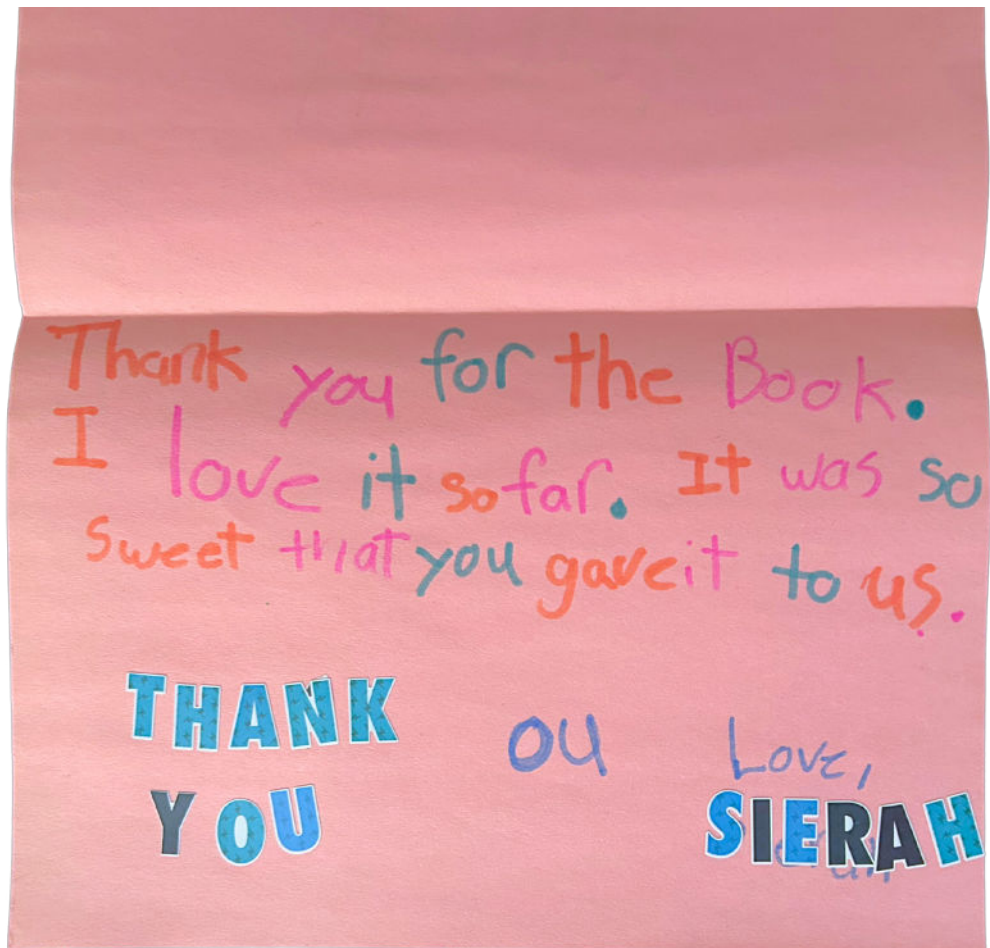 Thank you for the Book.
I love it so far. It was so
sweet that you gave it to us.
THANK
YOU
ou
Love,
SIERAH